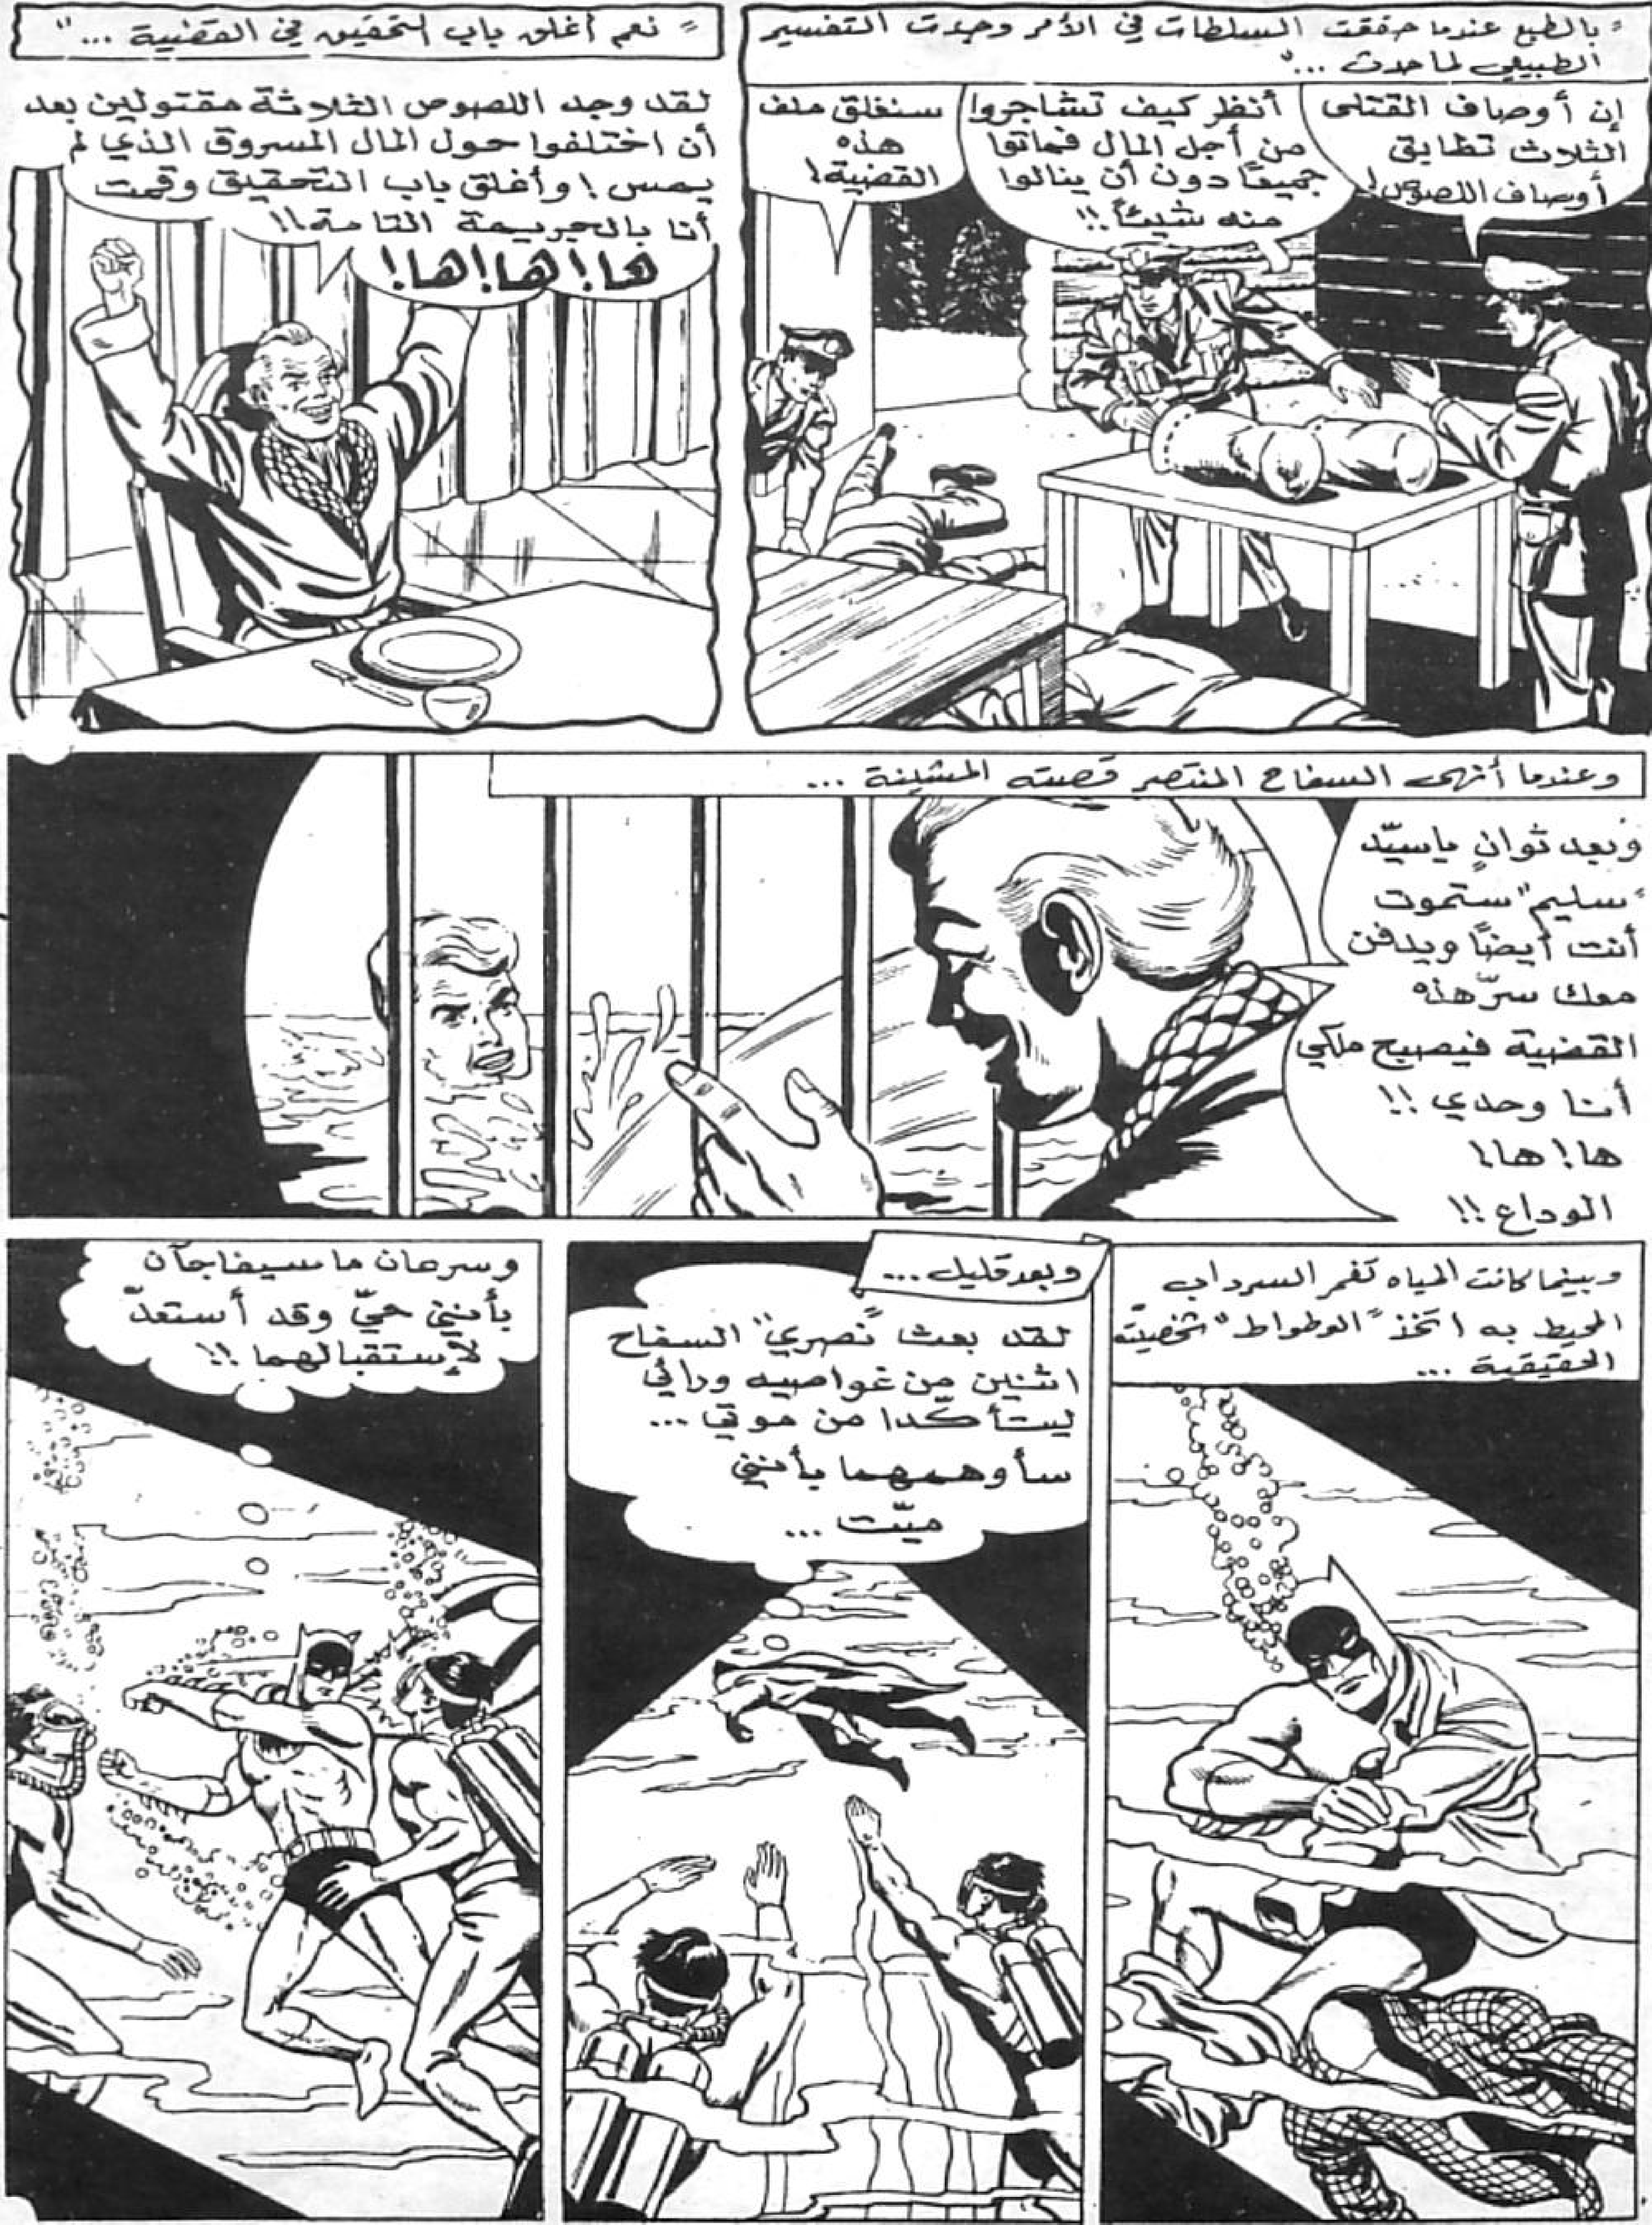 "بالطبع عندما حققت السلطات في الأمر وجدت التفسير
الطبيعي لما حدث ..."
إن أوصاف القتلى
الثلاث تطابق
أوصاف اللصوص!
أنظر كيف تشاجروا
من أجل المال فماتوا
جميعًا دون أن ينالوا
منه شيئًا!!
سنغلق ملف
هذه
القضية!
"نعم أغلق باب التحقيق في القضية ..."
لقد وجد اللصوص الثلاثة مقتولين بعد
أن اختلفوا حول المال المسروق الذي لم
يمس! وأغلق باب التحقيق وقمت
أنا بالجريمة التامة!!
ها!ها!ها!
وعندما أنهى السفاح المنتصر قصته المشينة ...
وبعد ثوانٍ ياسيّد
"سليم" ستموت
أنت أيضًا ويدفن
معك سرّ هذه
القضية فيصبح ملكي
أنا وحدي!!
ها! ها!
الوداع!!
وبينما كانت المياه تغمر السرداب
المحيط به اتخذ "الوطواط" شخصيته
الحقيقية ...
وبعد قليل ...
لقد بعث "نصري" السفاح
اثنين من غواصيه ورائي
ليتأكّدا من موتي ...
سأوهمهما بأنني
ميّت ...
وسرعان ما سيفاجآن
بأنني حيّ وقد أستعدّ
لإستقبالهما!!